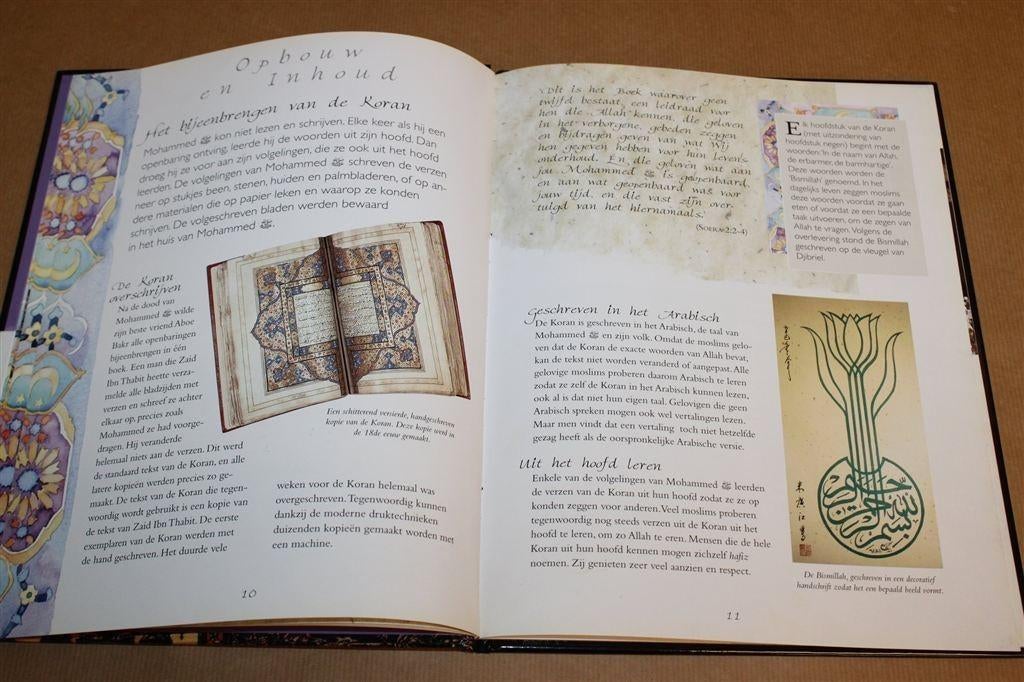 Opbouw
en Inhoud
Het bijeenbrengen van de Koran
Mohammed ﷺ kon niet lezen en schrijven. Elke keer als hij een
openbaring ontving, leerde hij de woorden uit zijn hoofd. Dan
droeg hij ze voor aan zijn volgelingen, die ze ook uit het hoofd
leerden. De volgelingen van Mohammed ﷺ schreven de verzen
neer op stukjes been, stenen, huiden en palmbladeren, of op an-
dere materialen die op papier leken en waarop ze konden
schrijven. De volgeschreven bladen werden bewaard
in het huis van Mohammed ﷺ.
De Koran
overschrijven
Na de dood van
Mohammed ﷺ wilde
zijn beste vriend Aboe
Bakr alle openbaringen
bijeenbrengen in één
boek. Een man die Zaid
Ibn Thabit heette verza-
melde alle bladzijden met
verzen en schreef ze achter
elkaar op, precies zoals
Mohammed ze had voorge-
dragen. Hij veranderde
helemaal niets aan de verzen. Dit werd
de standaard tekst van de Koran, en alle
latere kopieën werden precies zo ge-
maakt. De tekst van de Koran die tegen-
woordig wordt gebruikt is een kopie van
de tekst van Zaid Ibn Thabit. De eerste
exemplaren van de Koran werden met
de hand geschreven. Het duurde vele
Een schitterend versierde, handgeschreven
kopie van de Koran. Deze kopie werd in
de 18de eeuw gemaakt.
weken voor de Koran helemaal was
overgeschreven. Tegenwoordig kunnen
dankzij de moderne druktechnieken
duizenden kopieën gemaakt worden met
een machine.
10
'Dit is het Boek waarover geen
twijfel bestaat, een leidraad voor
hen die Allah kennen, die geloven
in het verborgene, gebeden zeggen
en bijdragen geven van wat Wij
hen gegeven hebben voor hun levens-
onderhoud. En die geloven wat aan
jou Mohammed ﷺ is geopenbaard,
en aan wat geopenbaard was voor
jouw tijd, en die vast zijn over-
tuigd van het hiernamaals.'
(Soera 2:2-4)
Elk hoofdstuk van de Koran
(met uitzondering van
hoofdstuk negen) begint met de
woorden: 'In de naam van Allah,
de erbarmer, de barmhartige'.
Deze woorden worden de
'Bismillah' genoemd. In het
dagelijks leven zeggen moslims
deze woorden voordat ze gaan
eten of voordat ze een bepaalde
taak uitvoeren, om de zegen van
Allah te vragen. Volgens de
overlevering stond de Bismillah
geschreven op de vleugel van
Djibriel.
Geschreven in het Arabisch
De Koran is geschreven in het Arabisch, de taal van
Mohammed ﷺ en zijn volk. Omdat de moslims gelo-
ven dat de Koran de exacte woorden van Allah bevat,
kan de tekst niet worden veranderd of aangepast. Alle
gelovige moslims proberen daarom Arabisch te leren
zodat ze zelf de Koran in het Arabisch kunnen lezen,
ook al is dat niet hun eigen taal. Gelovigen die geen
Arabisch spreken mogen ook wel vertalingen lezen.
Maar men vindt dat een vertaling toch niet hetzelfde
gezag heeft als de oorspronkelijke Arabische versie.
Uit het hoofd leren
Enkele van de volgelingen van Mohammed ﷺ leerden
de verzen van de Koran uit hun hoofd zodat ze ze op
konden zeggen voor anderen. Veel moslims proberen
tegenwoordig nog steeds verzen uit de Koran uit het
hoofd te leren, om zo Allah te eren. Mensen die de hele
Koran uit hun hoofd kennen mogen zichzelf hafiz
noemen. Zij genieten zeer veel aanzien en respect.
De Bismillah, geschreven in een decoratief
handschrift zodat het een bepaald beeld vormt.
11